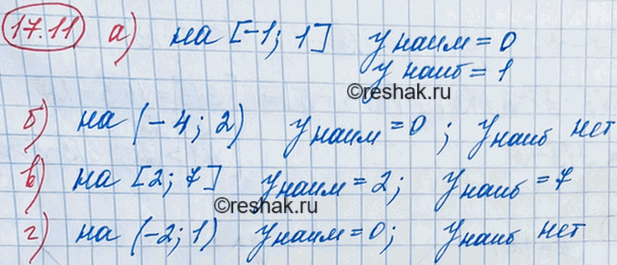 17.11 а) на [-1; 1] y наим = 0
y наиб = 1
©reshak.ru
б) на (-4; 2) y наим = 0 ; y наиб нет
в) на [2; 7] y наим = 2; y наиб = 7
©reshak.ru
г) на (-2; 1) y наим = 0; y наиб нет